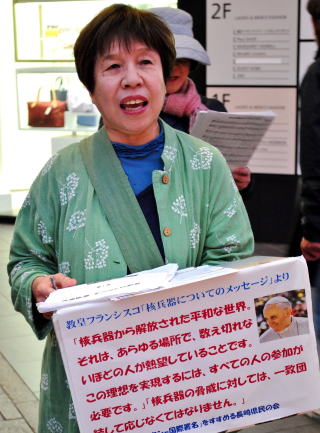 2F
LADIES & MEN'S FASHION
1F
教皇フランシスコ「核兵器についてのメッセージ」より
「核兵器から解放された平和な世界。
それは、あらゆる場所で、数え切れな
いほどの人が熱望していることです。
この理想を実現するには、すべての人の参加が
必要です。」「核兵器の脅威に対しては、一致団
結して応じなくてはなりません。」
国際署名」をすすめる長崎県民の会